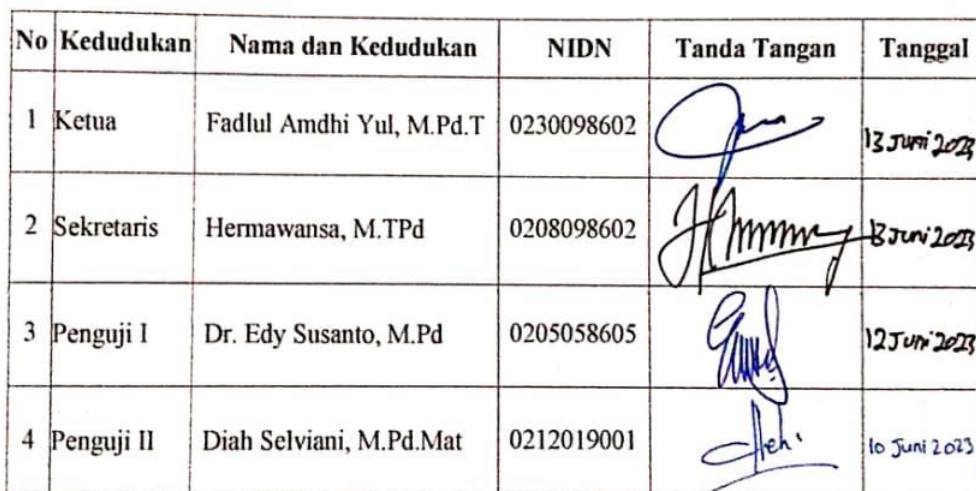 No Kedudukan Nama dan Kedudukan NIDN Tanda Tangan Tanggal
1 Ketua Fadlul Amdhi Yul, M.Pd.T 0230098602 13 Juni 2023
2 Sekretaris Hermawansa, M.TPd 0208098602 13 Juni 2023
3 Penguji I Dr. Edy Susanto, M.Pd 0205058605 12 Juni 2023
4 Penguji II Diah Selviani, M.Pd.Mat 0212019001 10 Juni 2023